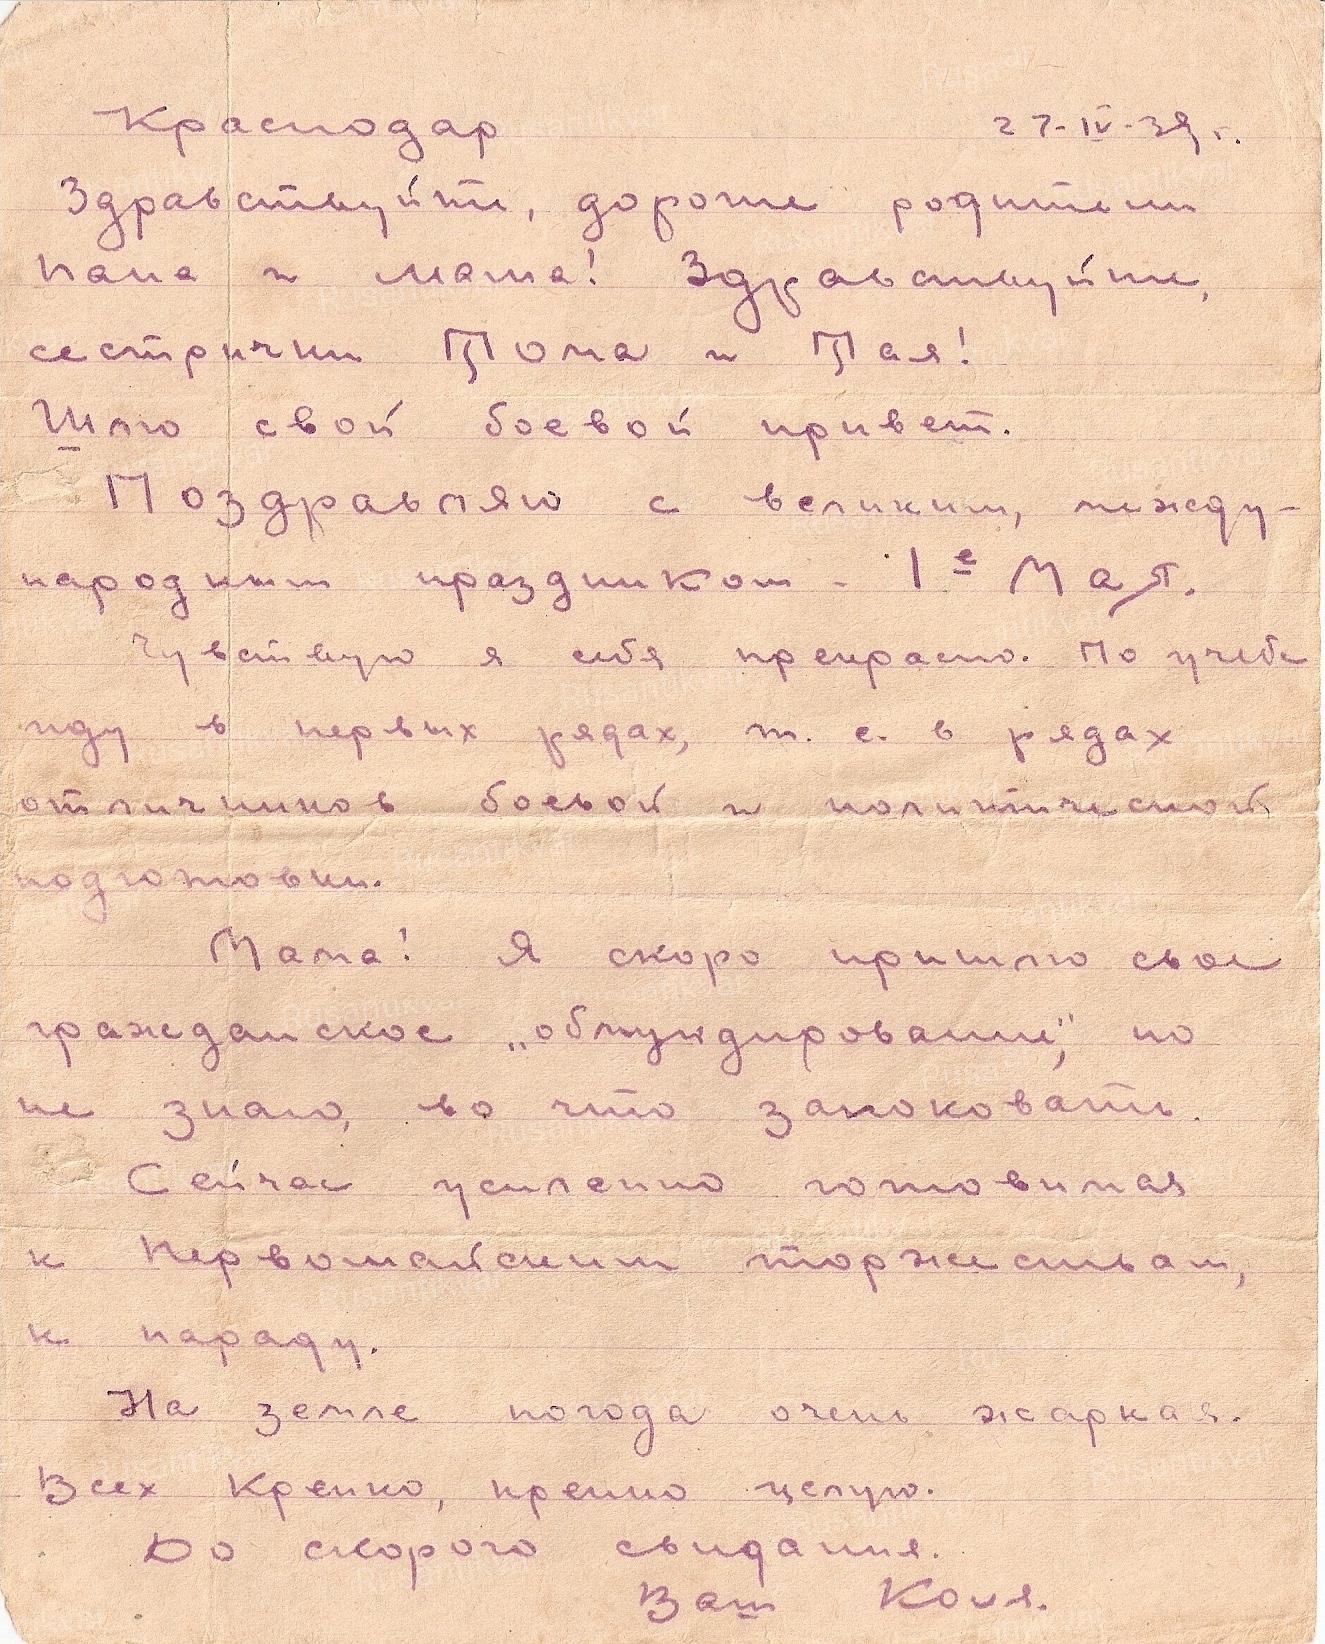 Краснодар 27-IV-39 г.
Здравствуйте, дорогие родители
папа и мама! Здравствуйте,
сестрички Тома и Тая!
Шлю свой боевой привет.
Поздравляю с великим, между-
народным праздником - 1е Мая.
Чувствую я себя прекрасно. По учебе
иду в первых рядах, т. е. в рядах
отличников боевой и политической
подготовки.
Мама! Я скоро пришлю свое
гражданское „обмундирование", но
не знаю, во что запоковать.
Сейчас усиленно готовимся
к Первомайским торжествам,
к параду.
На земле погода очень жаркая.
Всех крепко, крепко целую.
До скорого свидания.
Ваш Коля.